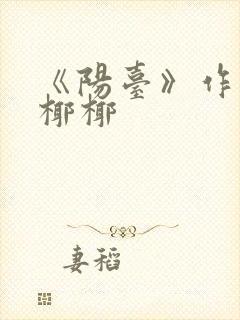 《陽臺》作
椰椰
妻稻